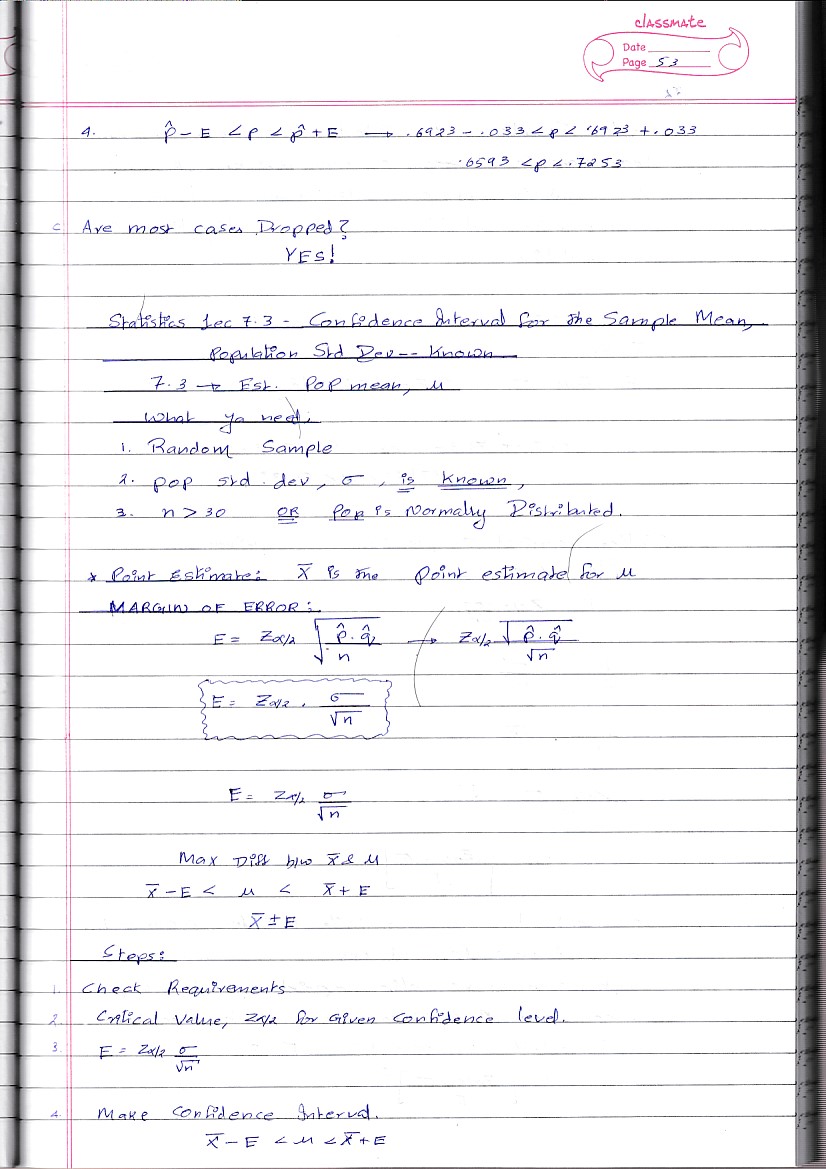 classmate
Date
Page 53
4. p̂ - E < p < p̂ + E → .6923 - .033 < p < .6923 + .033
.6593 < p < .7253
C Are most cases Dropped?
YES!
Statistics Lec 7.3 - Confidence Interval for the Sample Mean,
Population Std Dev -- Known
7.3 → Est. Pop mean, μ
What ya need:
1. Random Sample
2. pop std. dev, σ, is known,
3. n > 30 OR Pop is Normally Distributed.
* Point Estimate: x̄ is the point estimate for μ
MARGIN OF ERROR:
E = Zα/2 √(p̂·q̂/n) → Zα/2 √(p̂·q̂)/√n
E = Zα/2 . σ/√n
E = Zα/2 σ/√n
Max Diff b/w x̄ & μ
x̄ - E < μ < x̄ + E
x̄ ± E
Steps:
1. Check Requirements
2. Critical Value, Zα/2 for Given Confidence level.
3. E = Zα/2 σ/√n
4. Make Confidence Interval.
x̄ - E < μ < x̄ + E